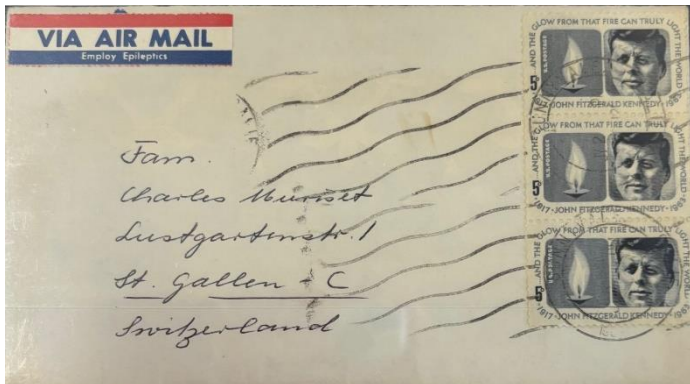 VIA AIR MAIL
Employ Epileptics
Fam.
Charles Muriset
Lustgartenstr. 1
St. Gallen - C
Switzerland
AND THE GLOW FROM THAT FIRE CAN TRULY LIGHT THE WORLD
U.S. POSTAGE
5
1917 · JOHN FITZGERALD KENNEDY · 1963
AND THE GLOW FROM THAT FIRE CAN TRULY LIGHT THE WORLD
U.S. POSTAGE
5
1917 · JOHN FITZGERALD KENNEDY · 1963
AND THE GLOW FROM THAT FIRE CAN TRULY LIGHT THE WORLD
U.S. POSTAGE
5
1917 · JOHN FITZGERALD KENNEDY · 1963